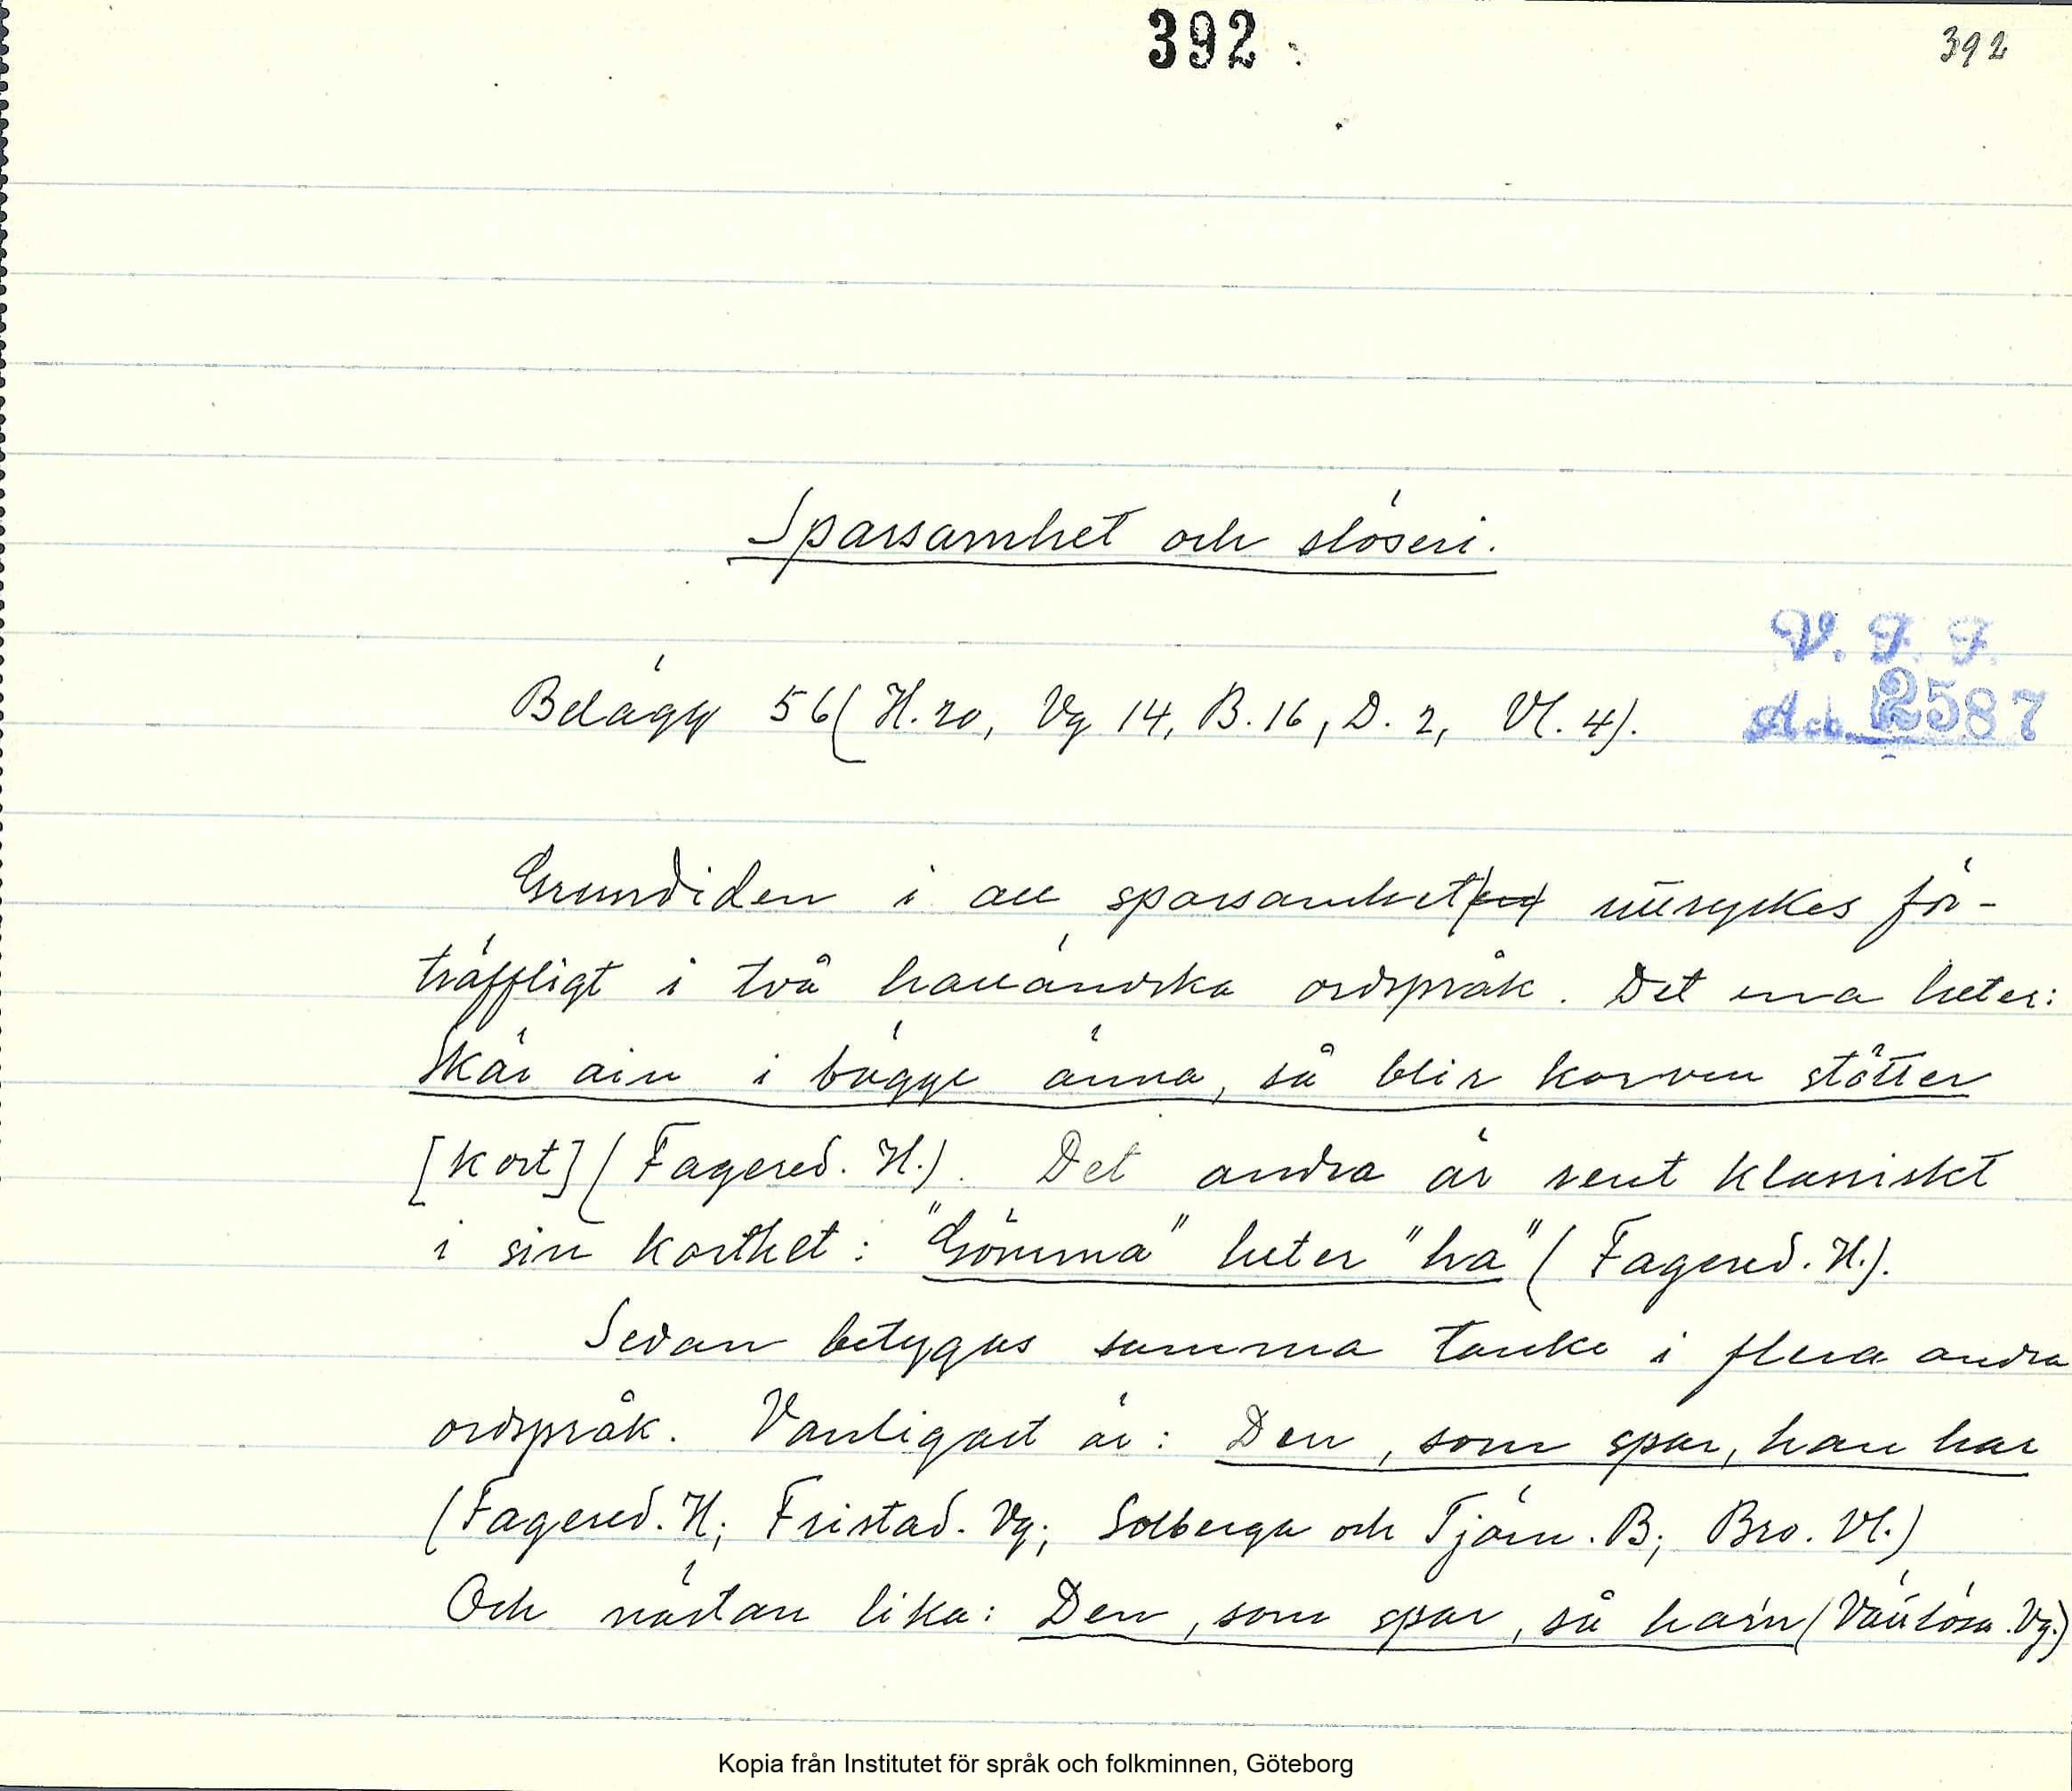 392
392
Sparsamhet och slöseri.
V. F. F.
Belägg 56 (H. 20, Vg 14, B. 16, D. 2, Vl. 4).
Acc. 2587
Grundiden i all sparsamhet uttryckes för-
träffligt i två halländska ordspråk. Det ena heter:
Skär ain i bägge änna, så blir korven stötter
[kort] (Fagered. H.). Det andra är rent klassiskt
i sin korthet: "Gömma" heter "ha" (Fagered. H.).
Sedan betygas samma tanke i flera andra
ordspråk. Vanligast är: Den, som spar, han har
(Fagered. H; Fristad. Vg; Solberga och Tjörn. B; Bro. Vl.)
Och nästan lika: Den, som spar, så har'n (Väntlösa. Vg.)
Kopia från Institutet för språk och folkminnen, Göteborg